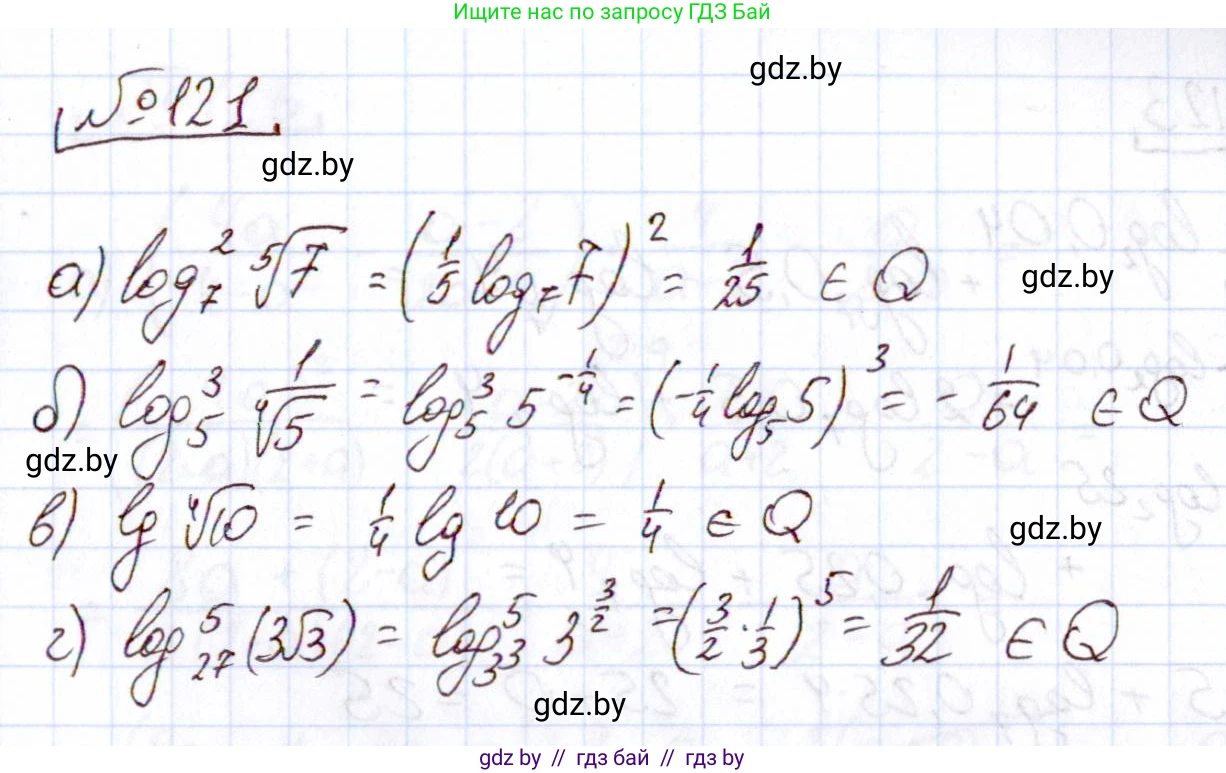 Ищите нас по запросу ГДЗ Бай
gdz.by
№121
gdz.by
а) log₇² ⁵√7 = (1/5 log₇ 7)² = 1/25 ∈ Q
gdz.by
б) log₅³ 1/⁴√5 = log₅³ 5^(-1/4) = (-1/4 log₅ 5)³ = - 1/64 ∈ Q
gdz.by
в) lg ⁴√10 = 1/4 lg 10 = 1/4 ∈ Q
gdz.by
г) log₂₇⁵ (3√3) = log⁵_(3³) 3^(3/2) = (3/2 · 1/3)⁵ = 1/32 ∈ Q
gdz.by
gdz.by // гдз бай // гдз by